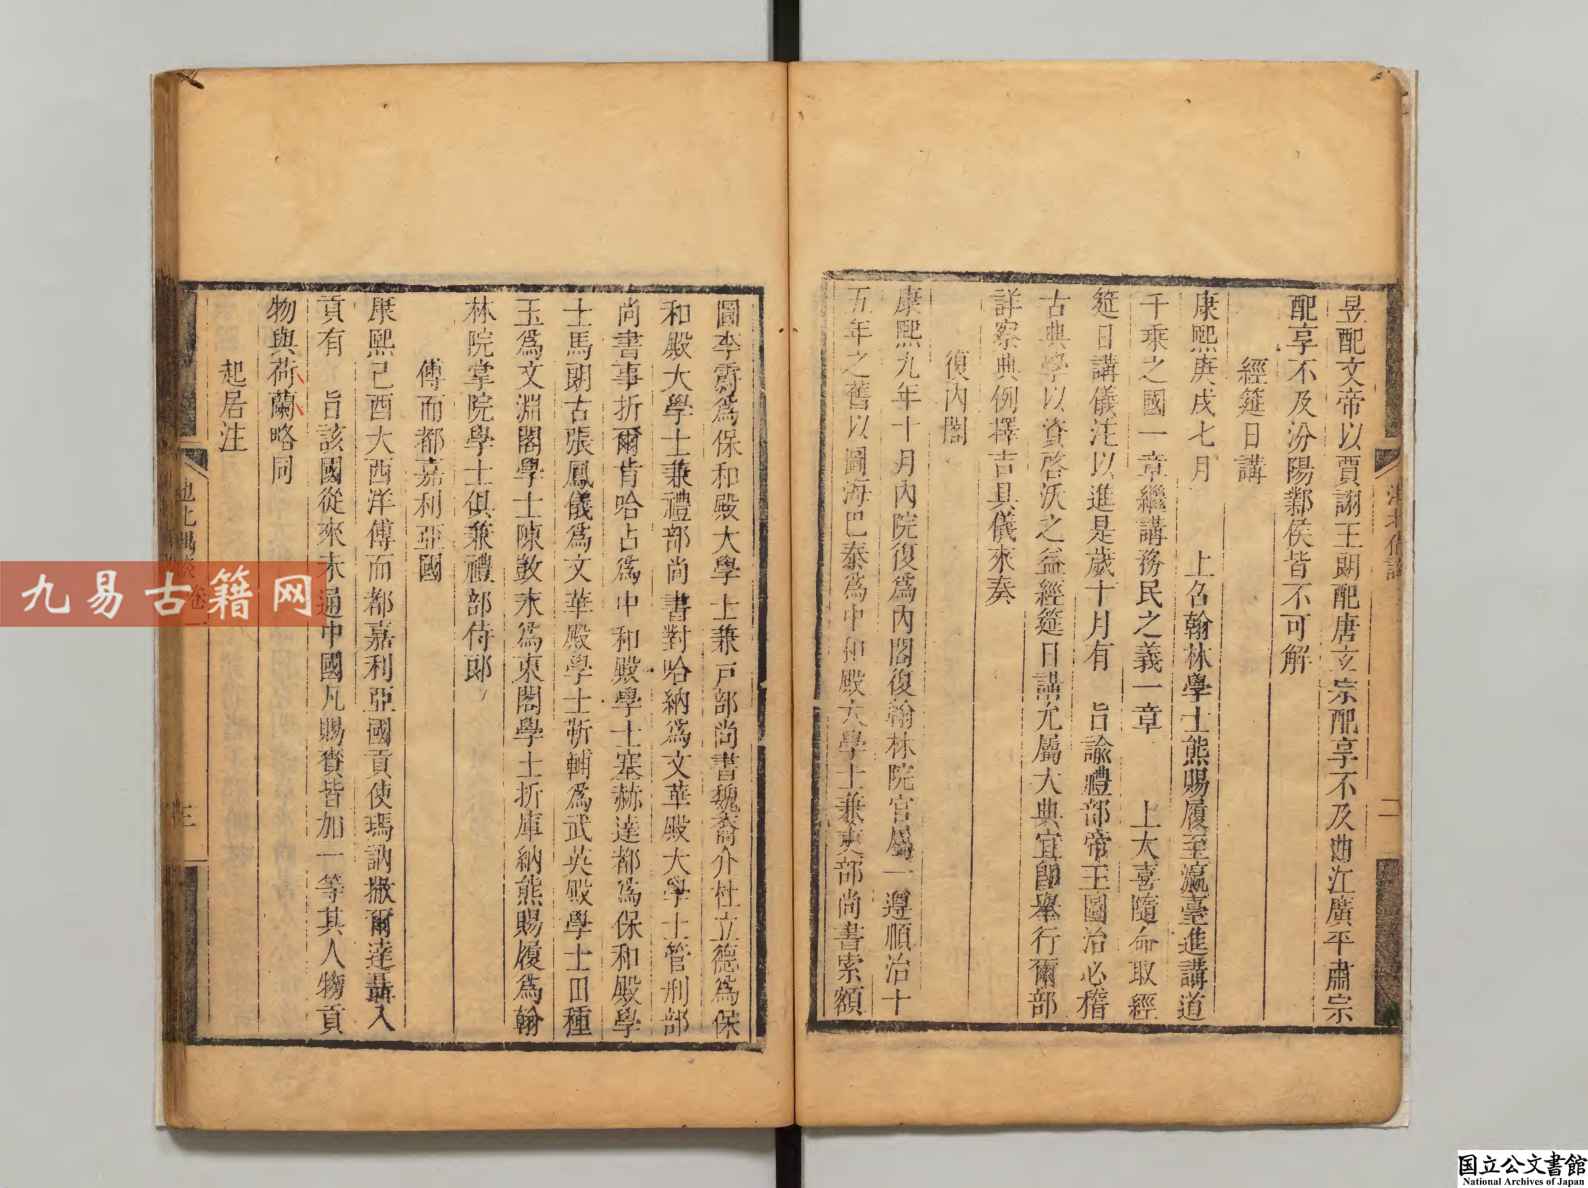 昱配文帝以賈詡王朗配唐玄宗配享不及曲江廣平肅宗
配享不及汾陽鄴侯皆不可解
經筵日講
康熙庚戌七月　上召翰林學士熊賜履至瀛臺進講道
千乘之國一章繼講務民之義一章　上大喜隨命取經
筵日講儀注以進是歲十月有　旨諭禮部帝王圖治必稽
古典學以資啓沃之益經筵日講允屬大典宜卽舉行爾部
詳察典例擇吉具儀來奏
復內閣
康熙九年十月內院復爲內閣復翰林院官屬一遵順治十
五年之舊以圖海巴泰爲中和殿大學士兼吏部尚書索額
圖李霨爲保和殿大學士兼戸部尚書魏裔介杜立德爲保
和殿大學士兼禮部尚書對哈納爲文華殿大學士管刑部
尚書事折爾肯哈占爲中和殿學士塞赫達都爲保和殿學
士馬朗古張鳳儀爲文華殿學士靳輔爲武英殿學士田種
玉爲文淵閣學士陳敱永爲東閣學士折庫納熊賜履爲翰
林院掌院學士俱兼禮部侍郎
傅而都嘉利亞國
康熙己酉大西洋傅而都嘉利亞國貢使瑪訥撒爾達聶入
貢有　旨該國從來未通中國凡賜賚皆加一等其人物貢
物與荷蘭略同
起居注
池北偶談 卷一
三
二
九易古籍网
国立公文書館
National Archives of Japan